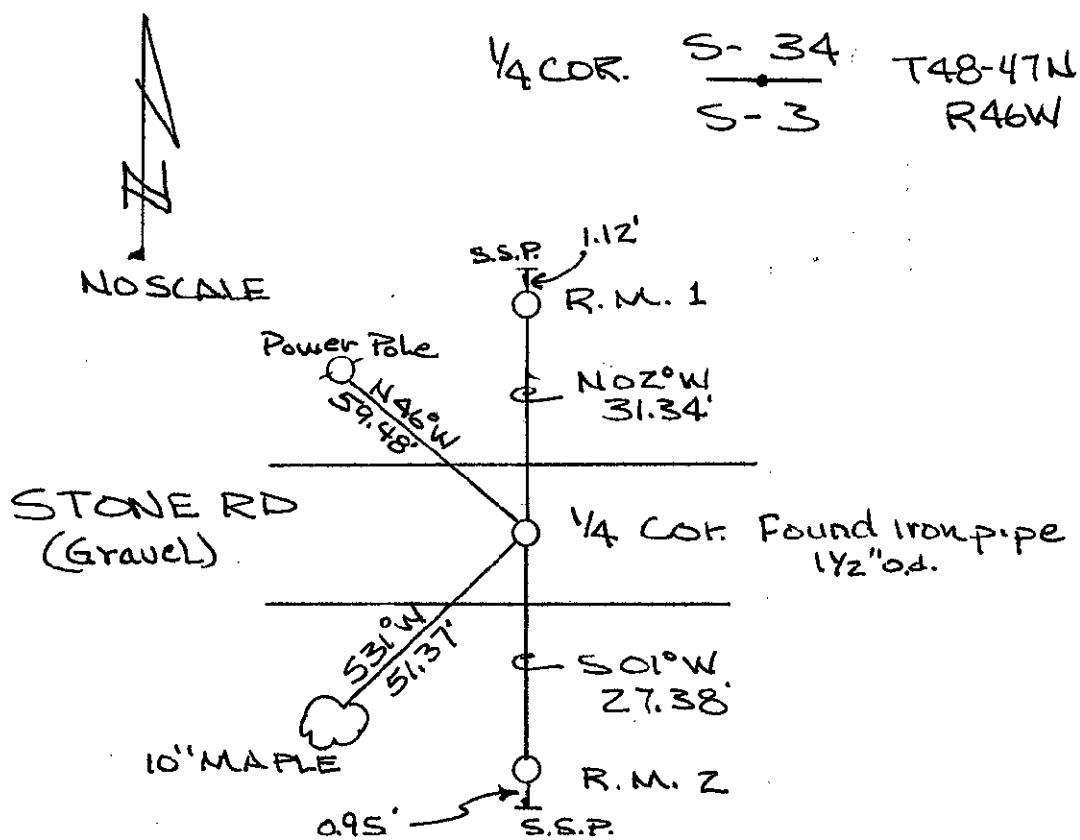 1/4 COR.
S- 34
S- 3
T48-47N
R46W
N
NO SCALE
S.S.P.
1.12'
R. M. 1
Power Pole
N46°W
59.48'
N02°W
31.34'
STONE RD
(Gravel)
1/4 Cor. Found Iron pipe
1 1/2" o.d.
S31°W
51.37'
S01°W
27.38'
10" MAPLE
R. M. 2
0.95'
S.S.P.